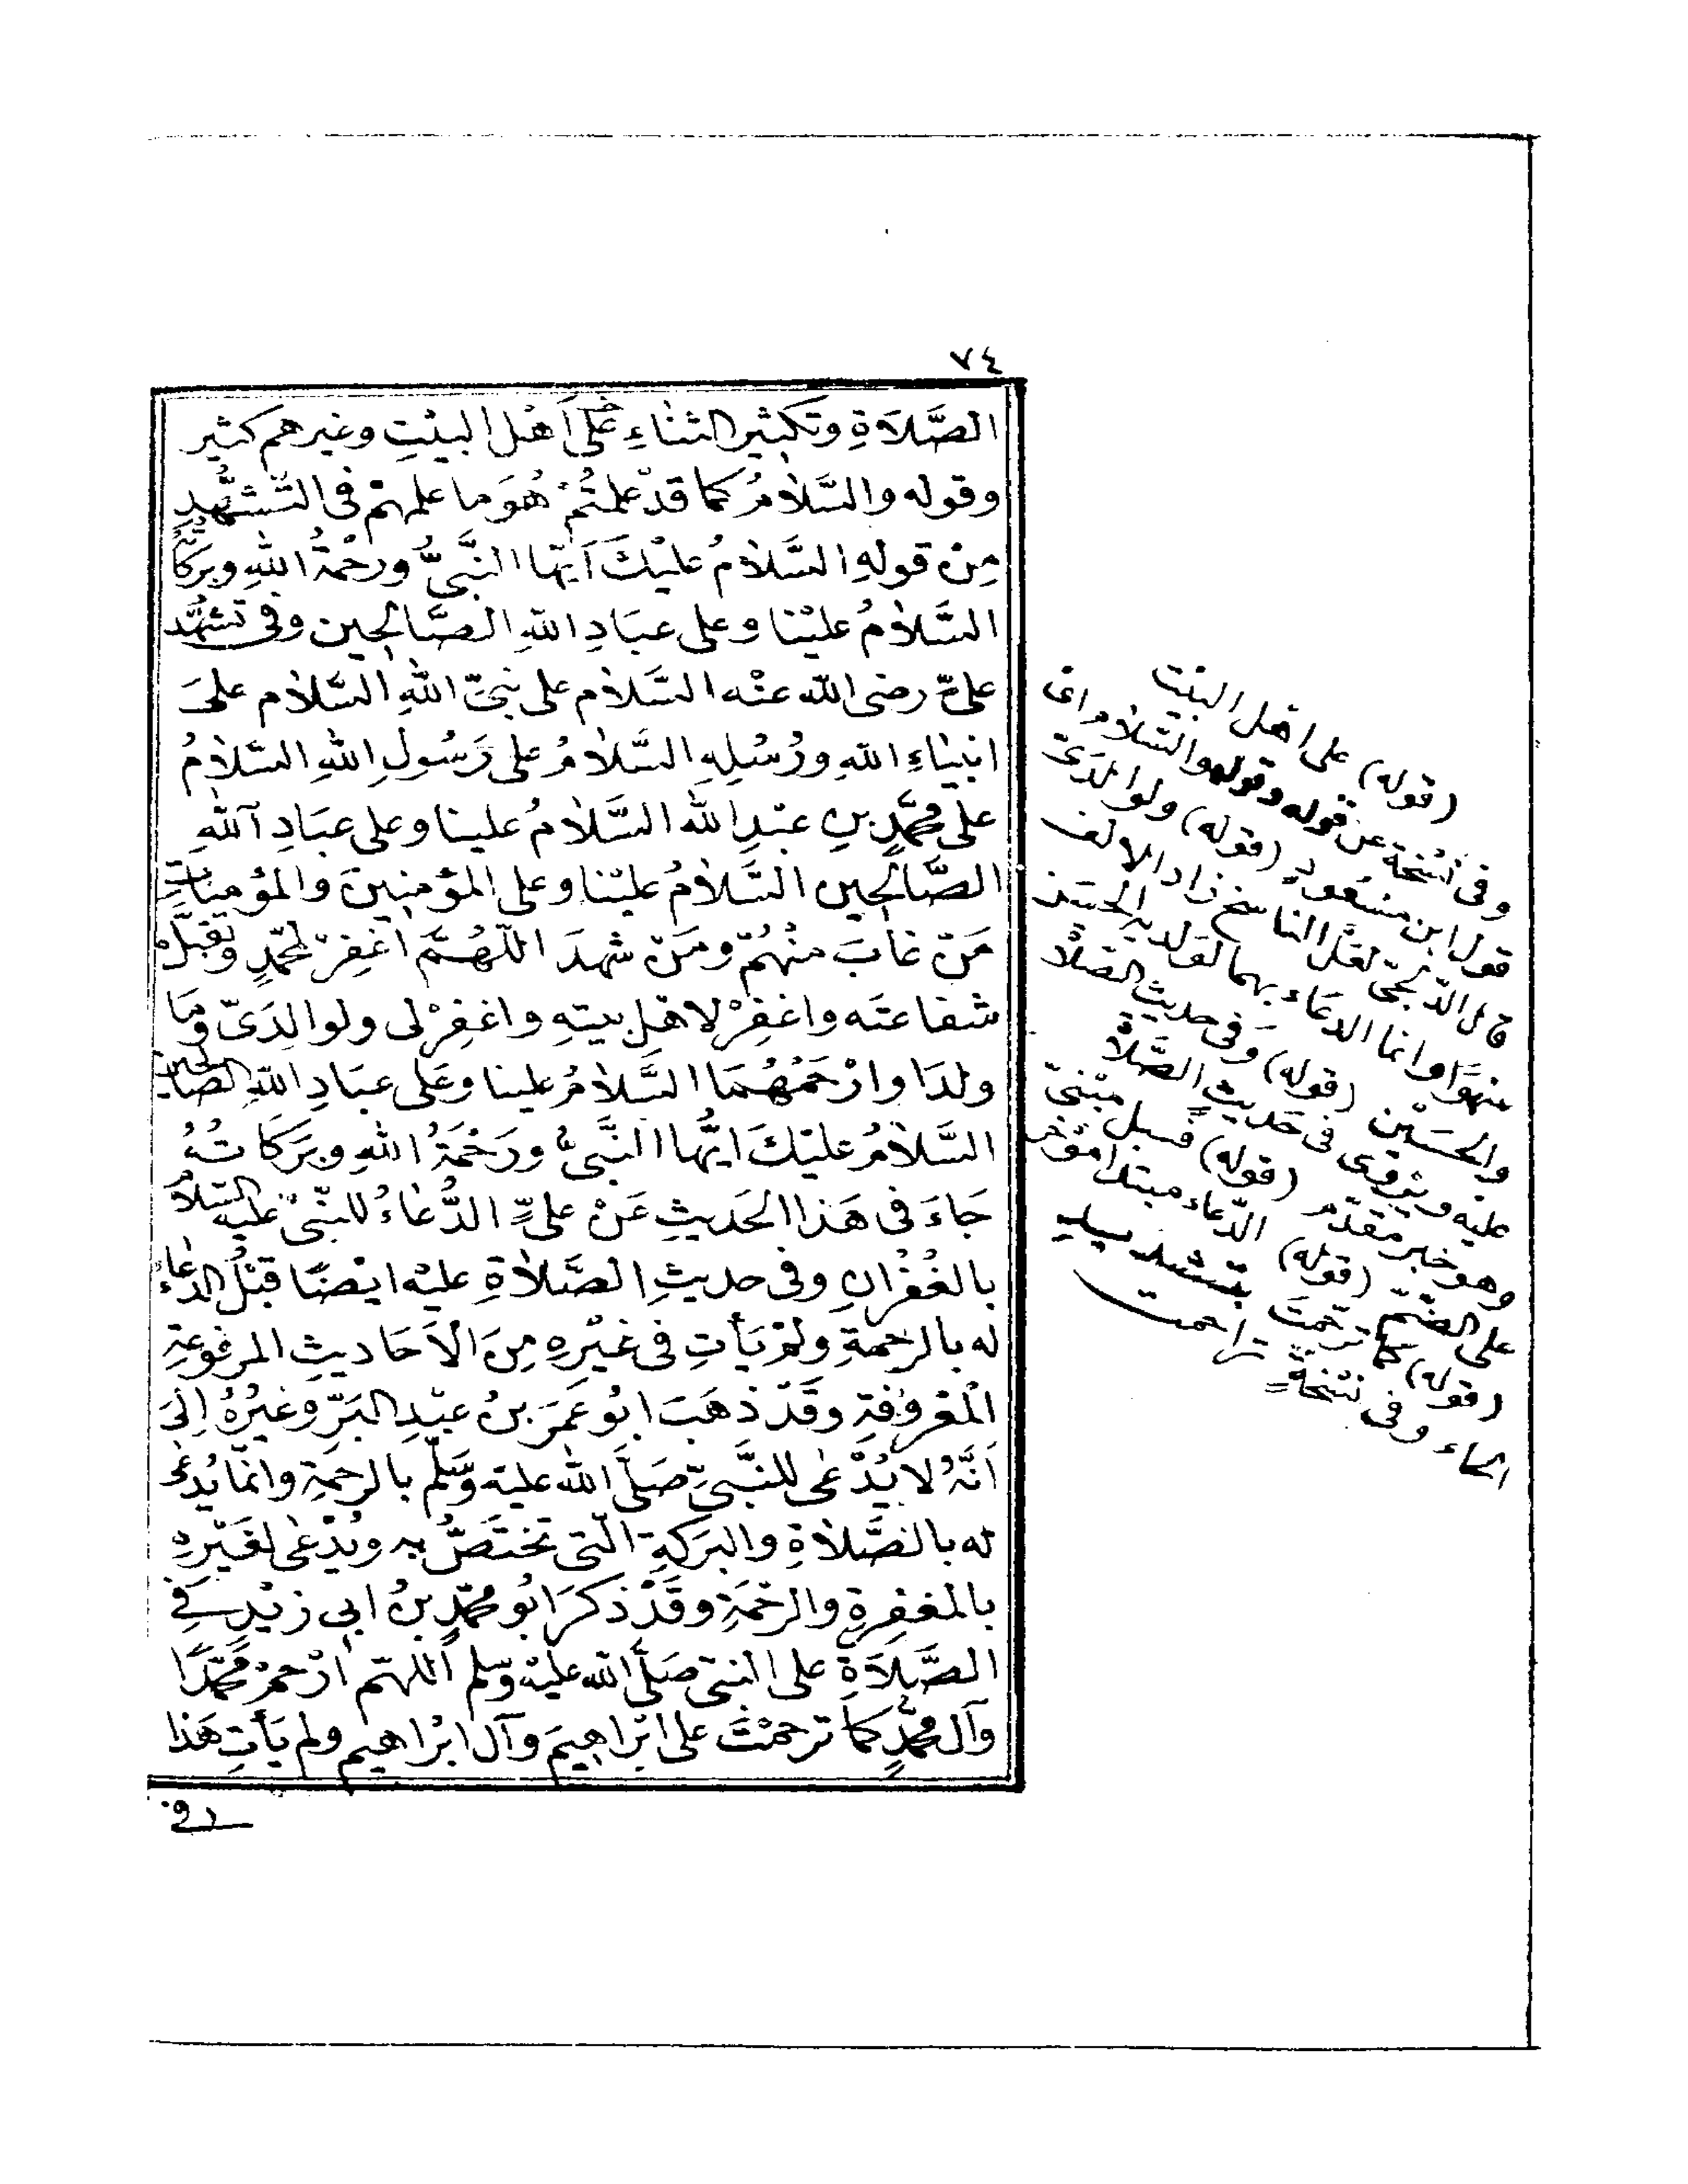 ٧٤
الصَّلَاةِ وتكثير الثناءِ عَلى أَهْل البيْتِ وغيرهم كثير
وقوله والسَّلامُ كما قدْ علمتُمْ هُوَ ما علمهمْ فى التّشهُّدِ
مِنْ قولهِ السَّلامُ عليْكَ أَيّها النَّبىُّ ورحْمةُ اللهِ وبركاتُهُ
السَّلامُ عليْنا وعلى عبَادِ اللهِ الصَّالحِين وفى تشهُّد
علىّ رضى الله عنْه السَّلام على نبىّ اللهِ السَّلام علىَ
انبيَاءِ اللهِ ورُسُلِهِ السَّلامُ على رَسُولِ اللهِ السَّلامُ
على محمَّدٍ بن عبْدِ الله السَّلامُ علينا وعلى عبَادِ اللهِ
الصَّالحين السَّلامُ عليْنا وعلى المؤمنينَ والمؤمناتِ
مَنْ غابَ منْهُمْ ومَنْ شهدَ اللّهُمَّ اغفِرْ لمحمّدٍ وتقبَّلْ
شفاعتَه واغفِرْ لاهْلِ بيتِهِ واغفِرْ لى ولوالدَىّ ومَا
ولدَا وارْحَمْهُمَا السَّلامُ علينا وعَلى عبَادِ اللهِ الصَّالحين
السَّلامُ عليْكَ ايُّها النَّبىُّ ورَحْمَةُ اللهِ وبَرَكَاتُهُ
جَاءَ فى هَذا الحَديثِ عَنْ علىٍّ الدُّعَاءُ للنّبىّ عليْه السّلامُ
بالغُفْرانِ وفى حديثِ الصَّلاةِ عليْه ايْضًا قبْلُ الدّعَاءُ
له بالرحمةِ ولمْ يَأتِ فى غيْرِهِ مِنَ الْأحَاديثِ المرفوعةِ
الْمَعْروفةِ وقَدْ ذهَبَ ابُو عُمَرَ بنُ عبْدِ البَرِّ وغيْرُهُ إلىَ
أنَّهُ لا يُدْعَى للنَّبىِّ صَلَّى اللهُ عليْه وَسَلَّم بالرحمَةِ وانَّمَا يُدْعَى
له بالصَّلاةِ والبَركةِ الَّتى تختَصُّ به ويُدْعَى لغَيْرِهِ
بالمَغفِرةِ والرحْمَةِ وقَدْ ذكَرَ ابُو محمّدٍ بنُ ابى زيْدٍ فى
الصَّلَاةِ على النبىّ صَلَّى الله عليْه وسلم اللهمّ ارْحمْ محمَّدًا
وآل محمَّدٍ كما ترحمْتَ على ابْراهِيمَ وآل ابْراهيم ولم يَأتِ هَذا
(قوله) على اهل البيت
وفى نسْخة عن قوله وقوله والسّلام اى
قول ابن مسْعُودٍ (قوله) ولوالدَىّ
قال الدّلجىّ لعلّ الناسخ زاد الالف
سَهْوًا وانما الدعَاء بهما لولديه الحسَن
والحسَيْن (قوله) وَفى حديثِ الصّلاة
عليْه ويرْوى فى حَديثِ الصَّلاة
وهو خبر مقدّم (قوله) قبل مبْنىّ
على الضّمّ (قوله) الدّعاء مبتدا مؤخّر
(قوله) كما ترحّمت بتشديد
الحاء وفى نسْخة تراحمت